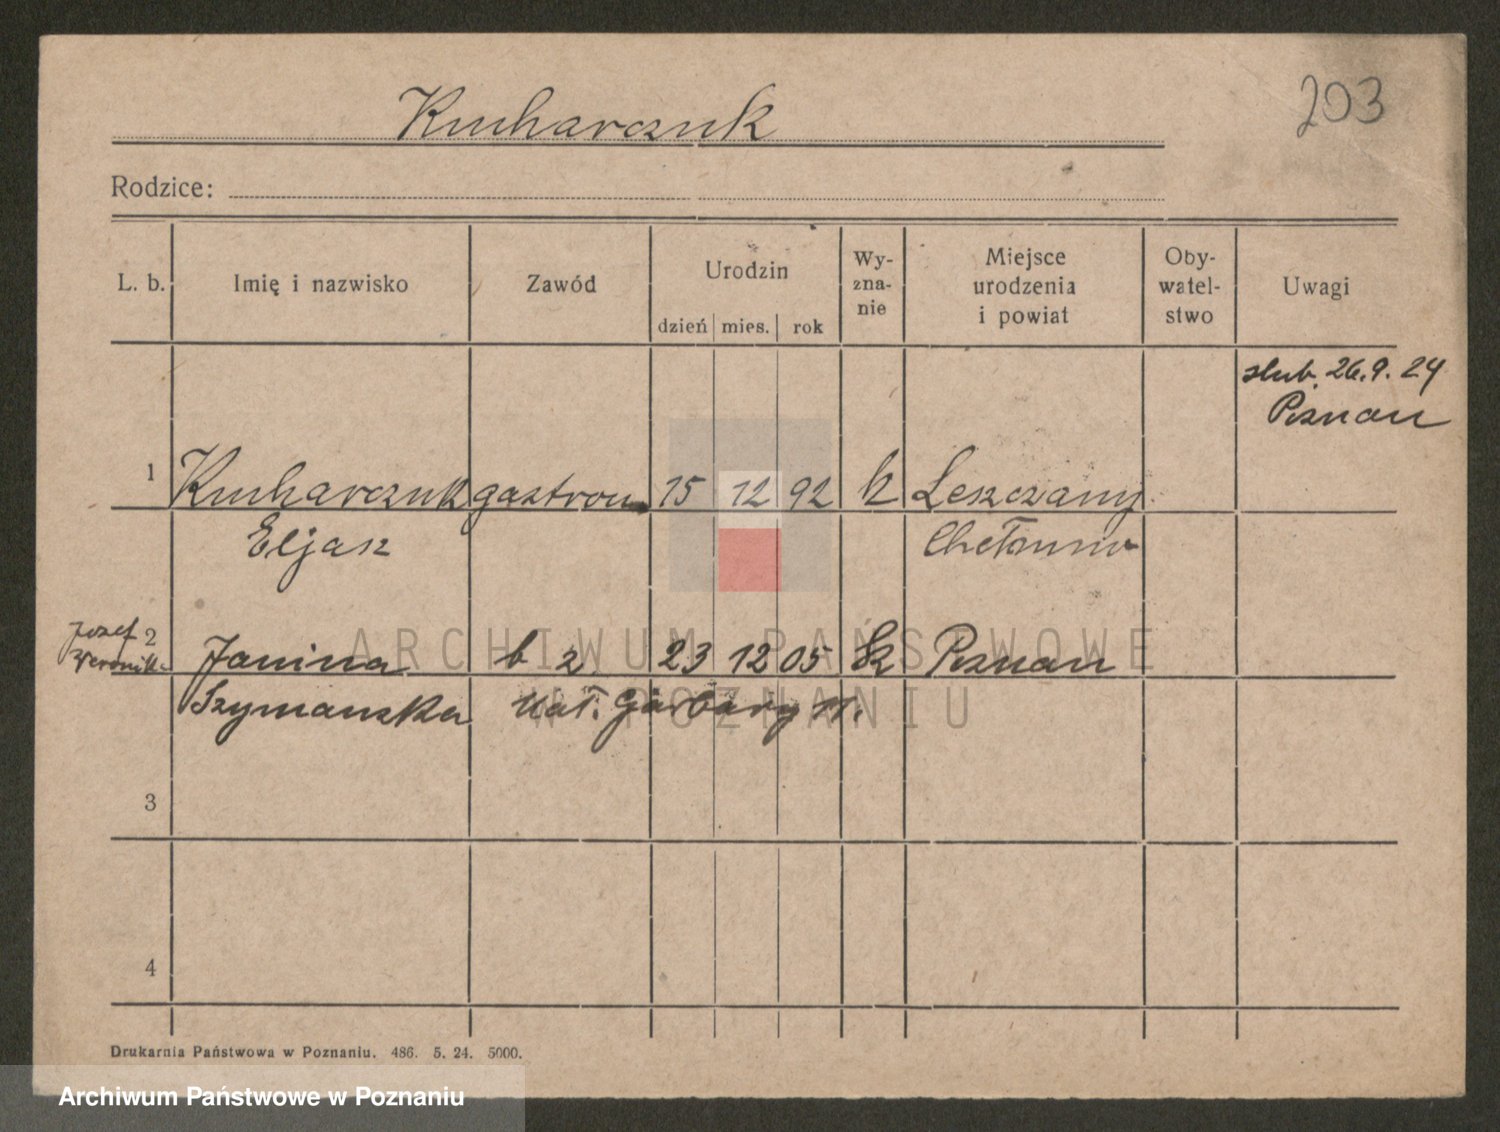 Kucharczuk
203
Rodzice:
L. b. Imię i nazwisko Zawód Urodzin dzień mies. rok Wy-zna-nie Miejsce urodzenia i powiat Oby-watel-stwo Uwagi
ślub. 26.9.24
Poznań
1 Kucharczuk gastron. 15 12 92 k Leszczany
Eljasz
Józef 2 Janina b z 23 12 05 Poznań
Weronika
Szymańska Garbary 11.
3
4
Drukarnia Państwowa w Poznaniu. 486. 5. 24. 5000.
ARCHIWUM PAŃSTWOWE
W POZNANIU
Archiwum Państwowe w Poznaniu